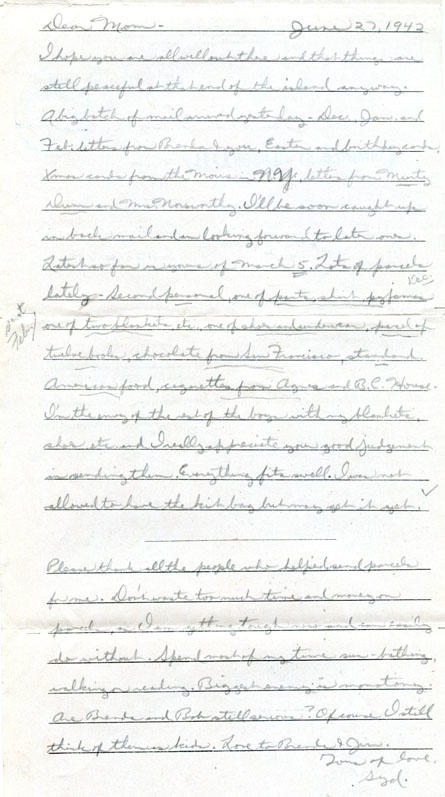 Dear Mom - June 27, 1942
I hope you are all well out there and that things are
still peaceful at that end of the island anyway.
A big batch of mail arrived yesterday - Dec., Jan. and
Feb. letters from Brenda & you, Easter and birthday cards,
Xmas cards from the in N.Y., letter from
and Mrs. Norsworthy. I'll be soon caught up
in back mail and am looking forward to later ones.
Latest so far is yours of March 5. Lots of parcels
lately - Second personal, one of pants, shirt, pyjamas
one of two blankets, etc., one of shoes and underwear, parcel of
twelve books, chocolate from San Francisco, standard
American food, cigarettes from Agnes and B.C. House.
I'm the envy of the rest of the boys with my blankets,
shoes, etc. and I really appreciate your good judgement
in sending them. Everything fits swell. I was not
allowed to have the kit bag but may get it yet.
Please thank all the people who helped send parcels
for me. Don't waste too much time and money on
parcels, as I am getting tough now and can easily
do without. Spend most of my time sun-bathing,
walking or reading. Biggest enemy is monotony.
Are Brenda and Bob still serious? Of course I still
think of them as kids. Love to Brenda & Jim.
Tons of love,
Syd.